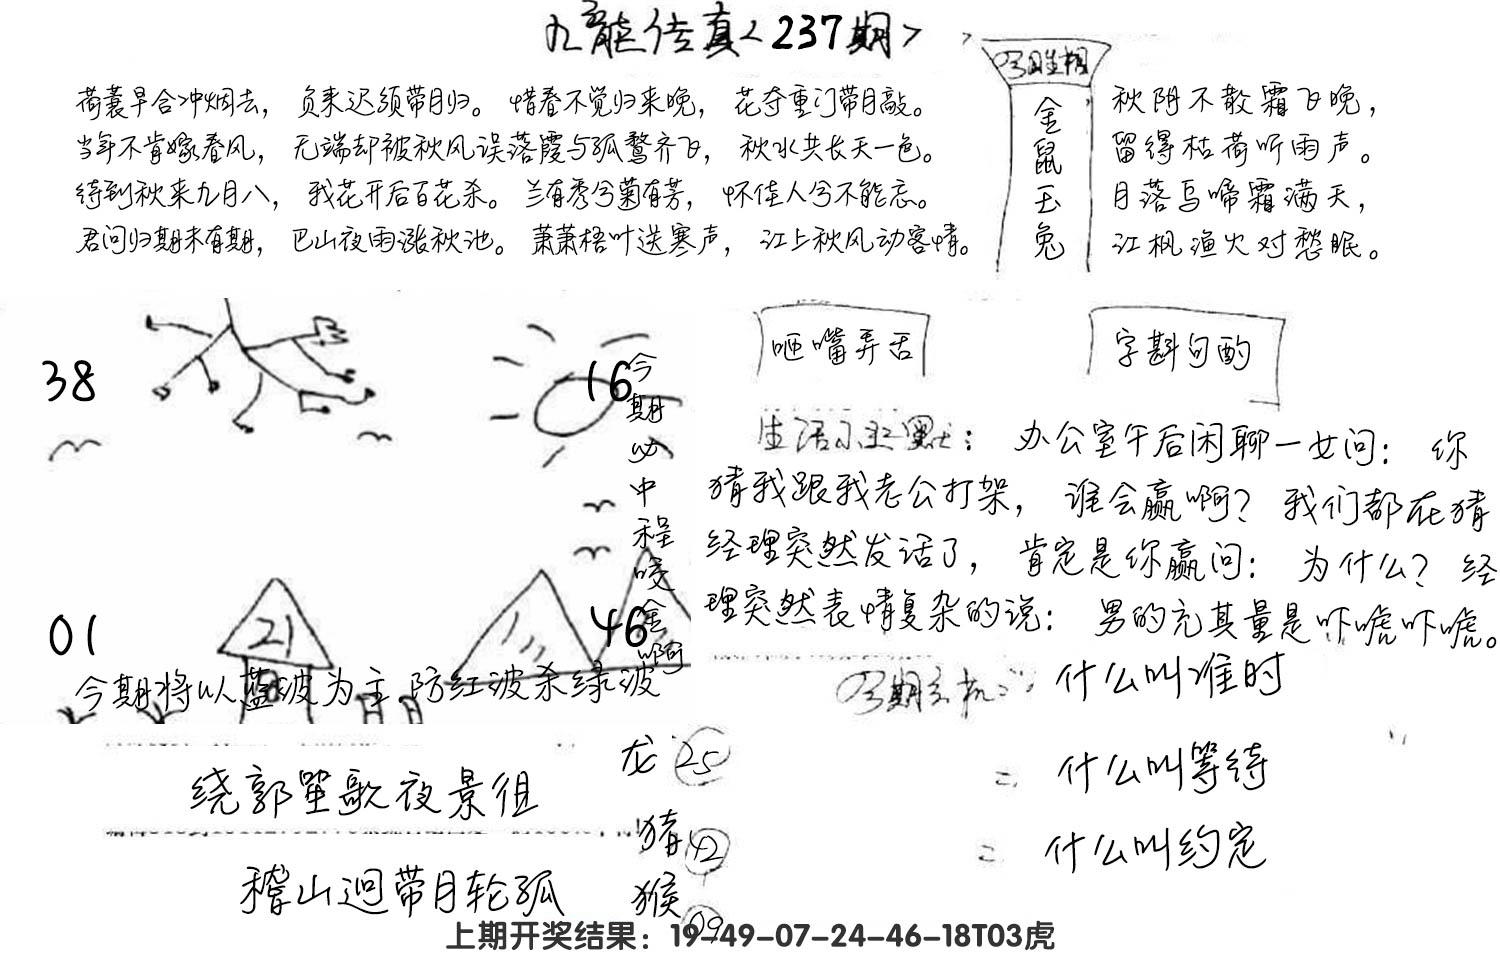 九龍传真<237期>
荷蓑早合冲烟去，负耒迟须带月归。惜春不觉归来晚，花夺重门带月敲。
当年不肯嫁春风，无端却被秋风误落霞与孤鹜齐飞，秋水共长天一色。
待到秋来九月八，我花开后百花杀。兰有秀兮菊有芳，怀佳人兮不能忘。
君问归期未有期，巴山夜雨涨秋池。萧萧梧叶送寒声，江上秋风动客情。
金鼠玉兔
秋阴不散霜飞晚，
留得枯荷听雨声。
月落乌啼霜满天，
江枫渔火对愁眠。
38
16
01
21
46
今期必中程咬金啊
今期将以蓝波为主防红波杀绿波
咂嘴弄舌
字斟句酌
生活小幽默：办公室午后闲聊一女问：你
猜我跟我老公打架，谁会赢啊？我们都在猜
经理突然发话了，肯定是你赢问：为什么？经
理突然表情复杂的说：男的充其量是吓唬吓唬。
什么叫准时
= 什么叫等待
= 什么叫约定
绕郭笙歌夜景徂
稽山迥带月轮孤
龙 25
猪 42
猴 09
上期开奖结果：19-49-07-24-46-18T03虎